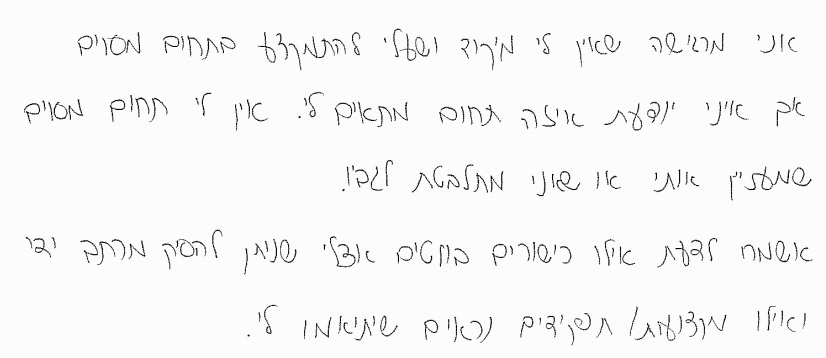 אני מרגישה שאין לי מיקוד ושעלי להתמקצע בתחום מסוים
אך איני יודעת איזה תחום מתאים לי. אין לי תחום מסוים
שמעניין אותי או שאני מתלבטת לגביו.
אשמח לדעת אילו כישורים בולטים אצלי שניתן להסיק מכתב ידי
ואילו מקצועות/ תפקידים נראים שיתאימו לי.